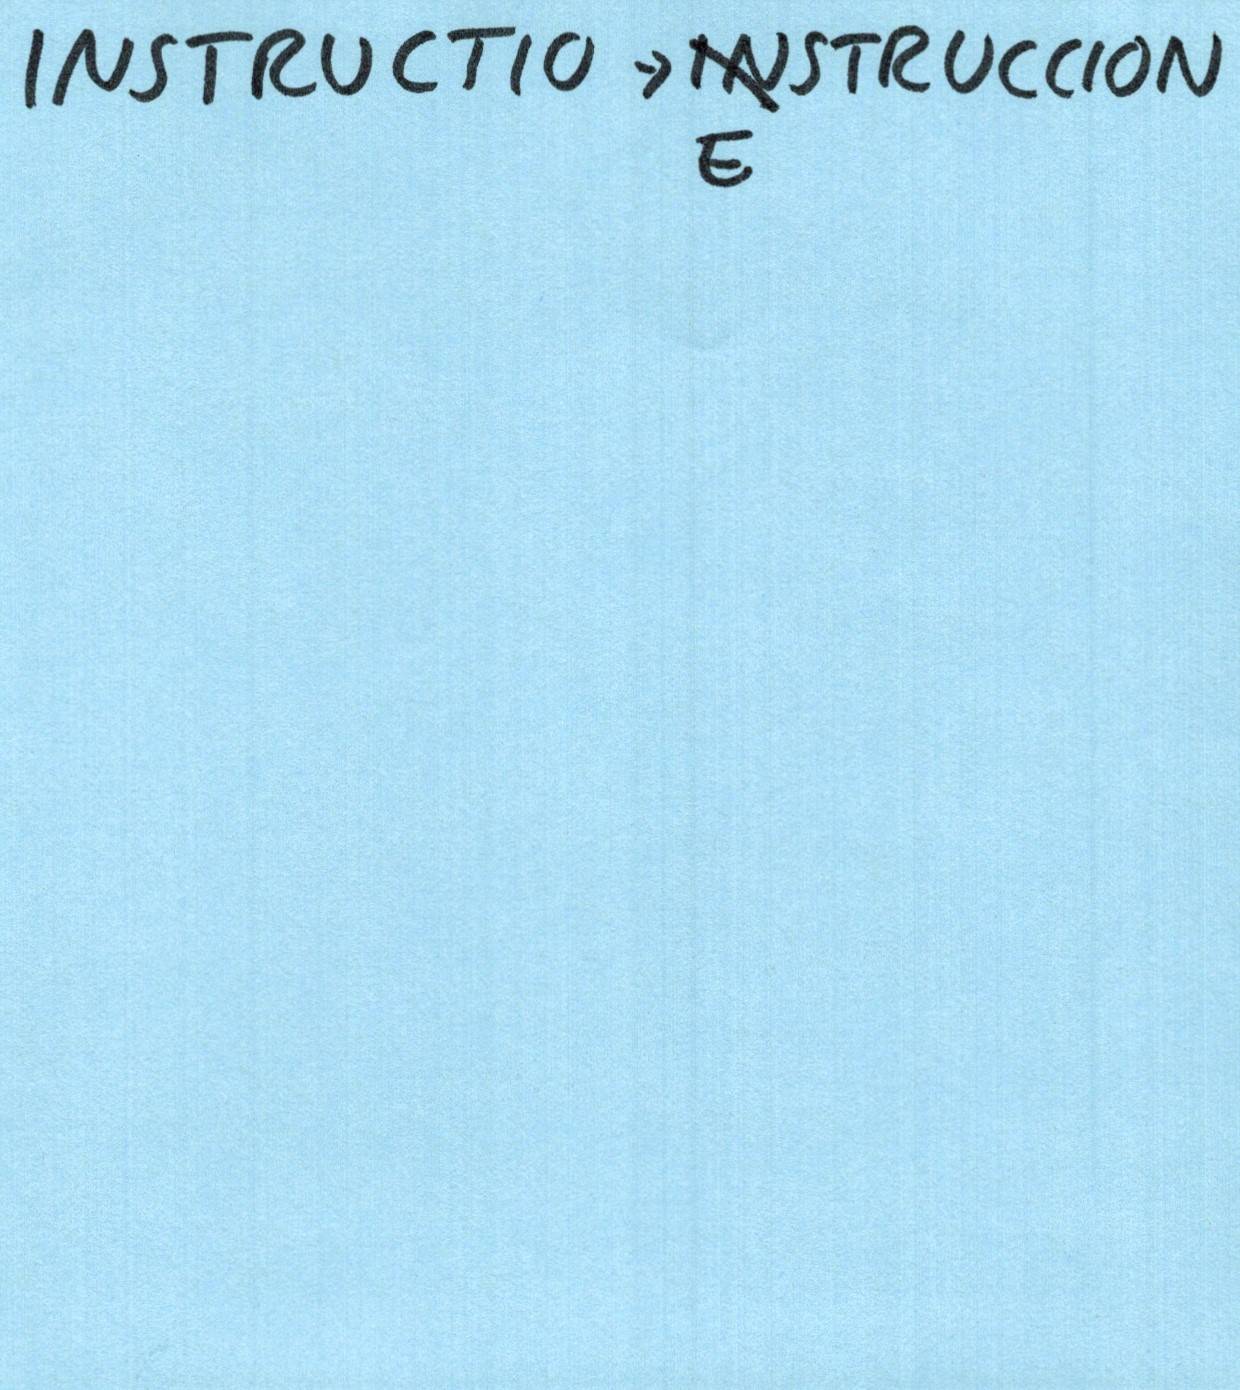 INSTRUCTIO → INSTRUCCION
E